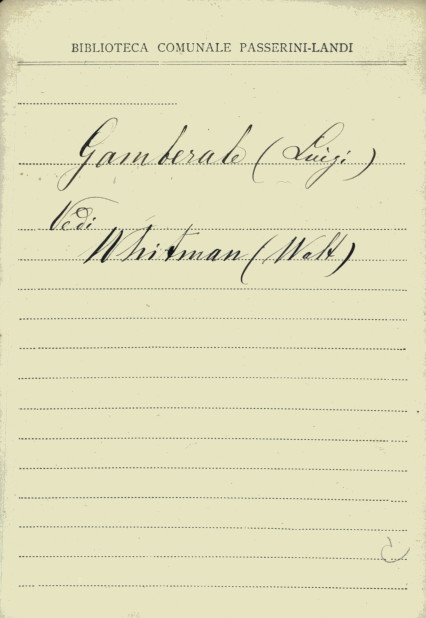 BIBLIOTECA COMUNALE PASSERINI-LANDI
Gamberale (Luigi)
Vedi
Whitman (Walt)